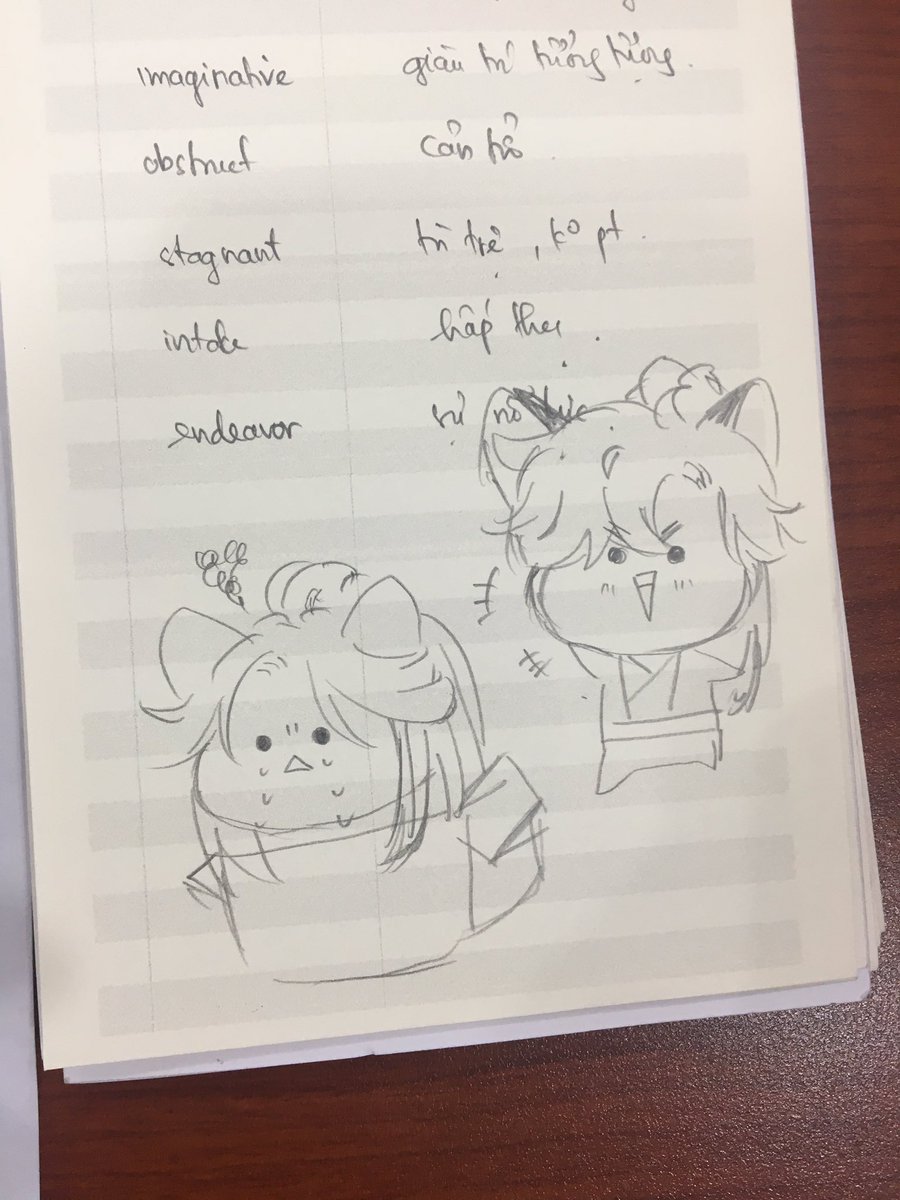 imaginative giàu trí tưởng tượng.
obstruct cản trở.
stagnant trì trệ, ko pt.
intake hấp thụ.
endeavor sự nỗ lực